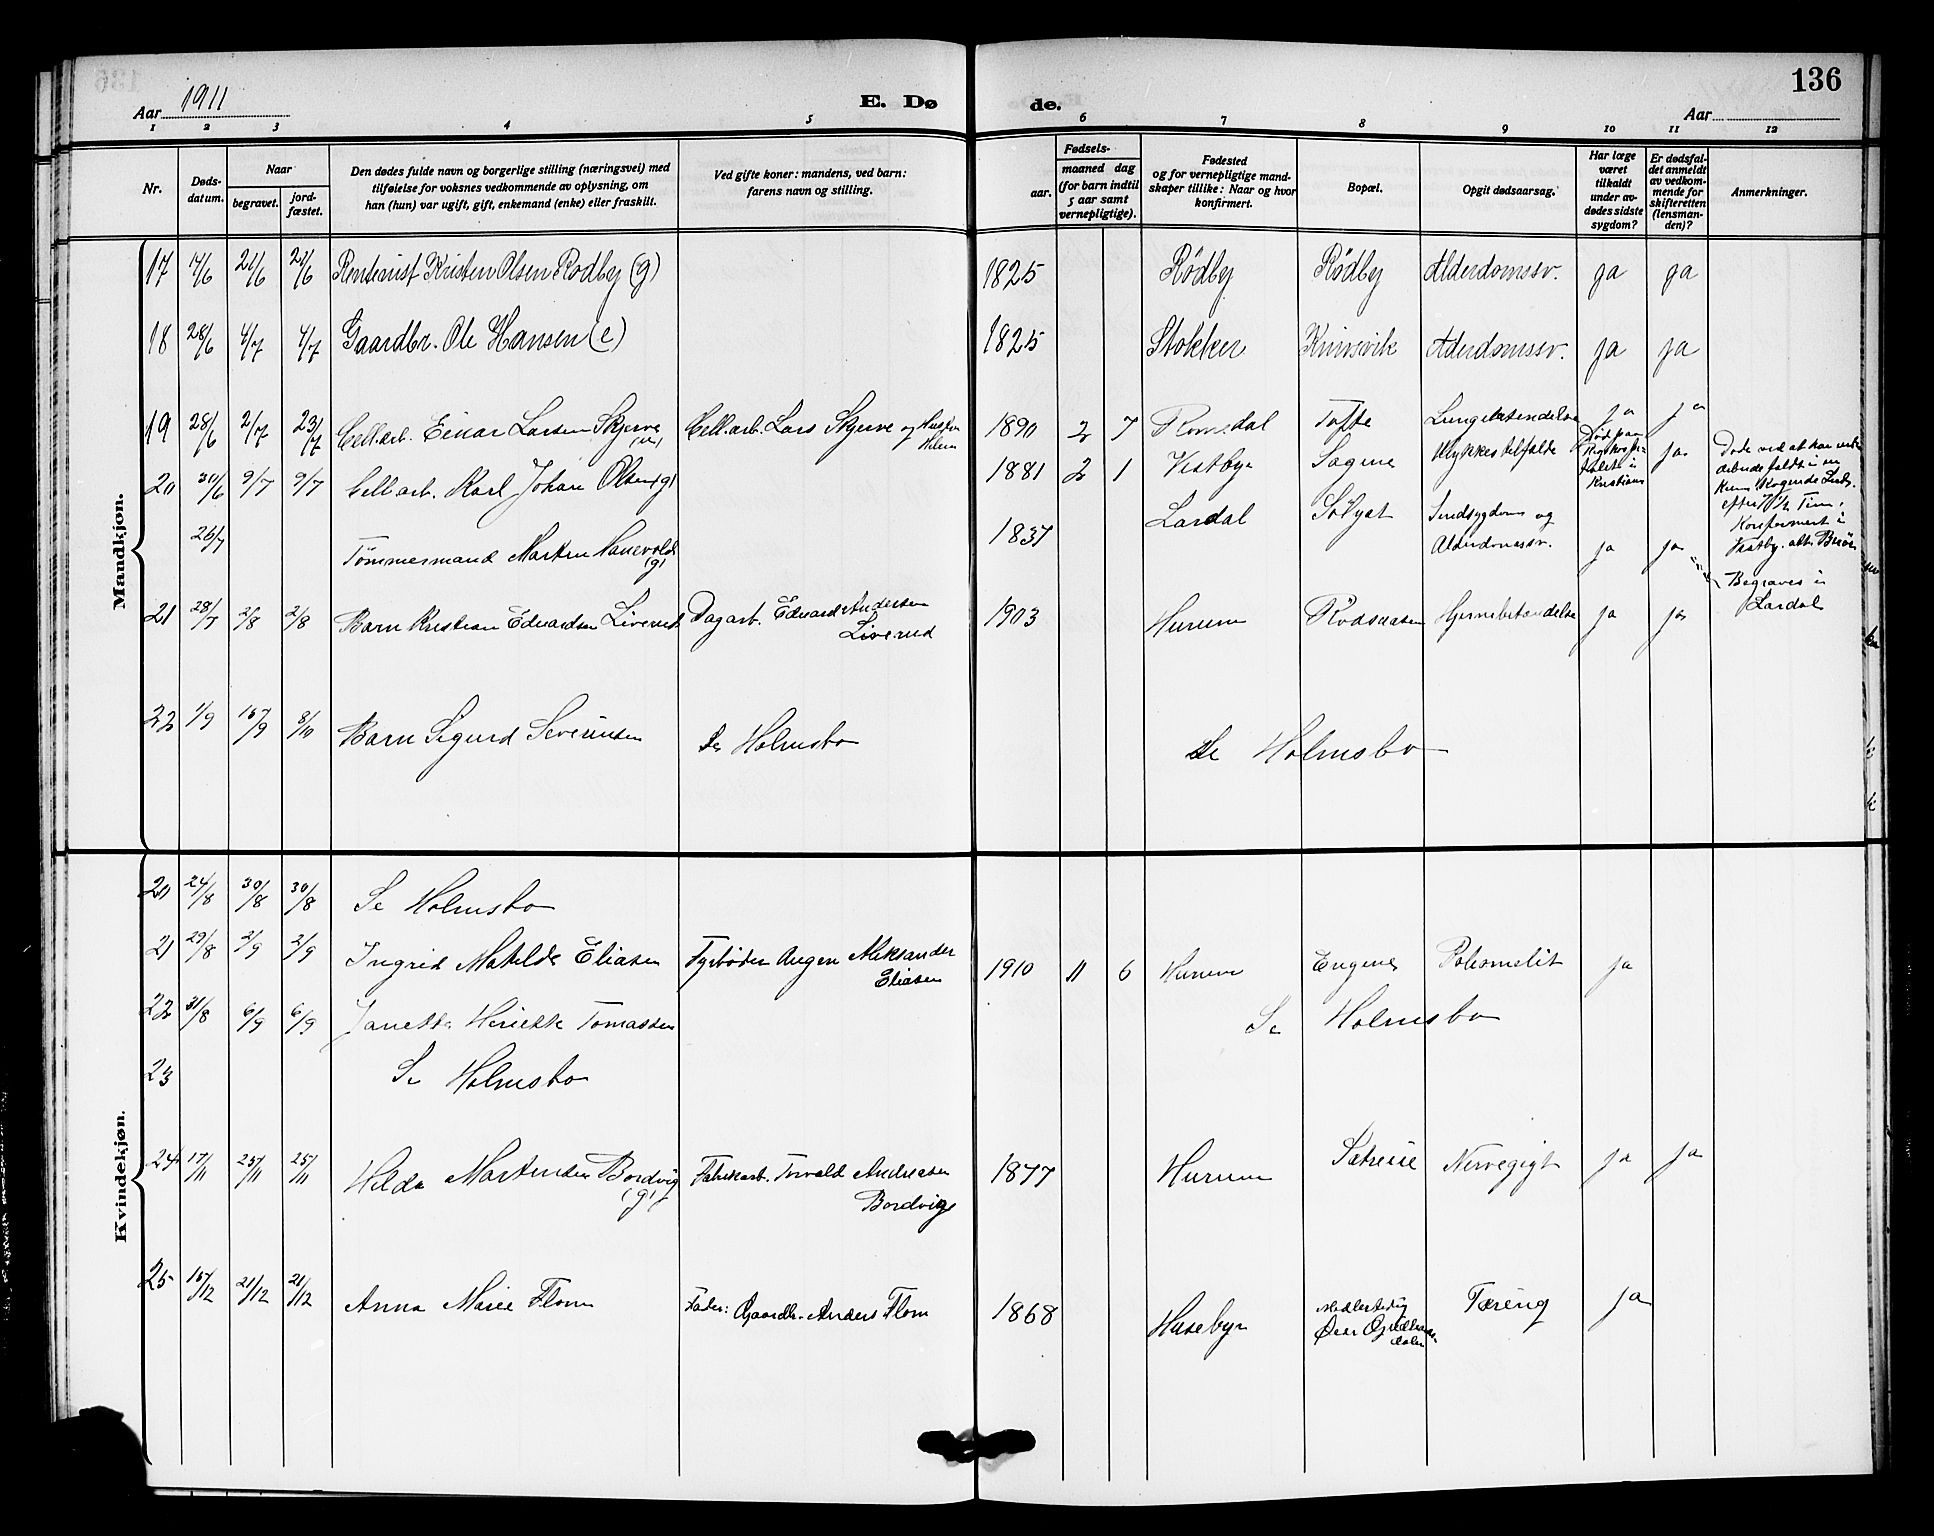 136
Aar 1911
E. Dø de.
Aar
1 2 3 4 5 6 7 8 9 10 11 12
Nr.
Døds-
datum.
Naar
begravet.
jord-
fæstet.
Den dødes fulde navn og borgerlige stilling (næringsvei) med
tilføielse for voksnes vedkommende av oplysning, om
han (hun) var ugift, gift, enkemand (enke) eller fraskilt.
Ved gifte koner: mandens, ved barn:
farens navn og stilling.
Fødsels-
aar.
maaned dag
(for barn indtil
5 aar samt
vernepligtige).
Fødested
og for vernepligtige mand-
skaper tillike: Naar og hvor
konfirmert.
Bopæl.
Opgit dødsaarsag.
Har læge
været
tilkaldt
under av-
dødes sidste
sygdom?
Er dødsfal-
det anmeldt
av vedkom-
mende for
skifteretten
(lensman-
den)?
Anmerkninger.
Mandkjøn.
17 17/6 21/6 21/6 Rentenist Kristen Olsen Rødby (g) 1825 Rødby Rødby Alderdomssv. ja ja
18 28/6 4/7 4/7 Gaardbr. Ole Hansen (e) 1825 Stokker Knivsvik Alderdomssv. ja ja
19 28/6 2/7 23/7 Cell.arb. Einar Larsen Skjerve (u) Cell.arb. Lars Skjerve og Hustru 1890 2 7 Romsdal Tofte Lungebetendelse ja ja
20 30/6 9/7 9/7 Cell.arb. Karl Johan Olsen (g) 1881 2 1 Vestby Sagene Ulykkestilfælde
Død paa
Rigshospi-
talet i
Kristiania
ja
Døde ved at han under
arbeide faldt i en
Kum Kogende Lud,
efter 7 1/2 Time,
Konfirmert i
Vestby.
26/7 Tømmermand Morten Hanevold (g) 1837 Lardal Solyst Sindsygdom og
Alderdomssv. ja ja
Begraves i
Lardal
21 28/7 2/8 2/8 Barn Kristian Edvardsen Liverud Dagarb. Edvard Andersen
Liverud 1903 Hurum Rødsaasen Hjernebetændelse ja ja
22 1/9 15/9 8/10 Barn Sigurd Severinsen Se Holmsbo Se Holmsbo
Kvindekjøn.
20 24/8 30/8 30/8 Se Holmsbo
21 29/8 2/9 2/9 Ingrid Matilde Eliasen Fyrbøder Augen Aleksander
Eliasen 1910 11 6 Hurum Engene Poliomelit ja
22 31/8 6/9 6/9 Janette Heriette Tomassen Se Holmsbo
23 Se Holmsbo
24 17/11 25/11 25/11 Hilda Martinsen Bordvig (g) Fabrikarb. Torvald Andreasen
Bordvig 1877 Hurum Sætreie Nervegigt ja ja
25 15/12 21/12 21/12 Anna Marie Flom Fader: Gaardbr. Anders Flom 1868 Huseby Tæring ja